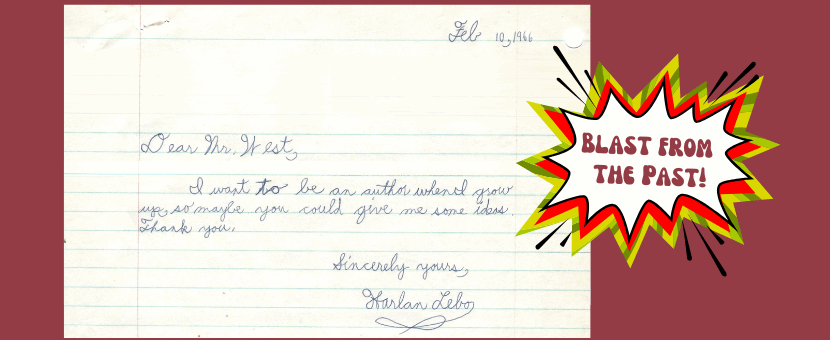 Feb 10, 1966
Dear Mr. West,
I want to be an author when I grow
up, so maybe you could give me some ideas.
Thank you.
Sincerely yours,
Harlan Lebo
BLAST FROM
THE PAST!